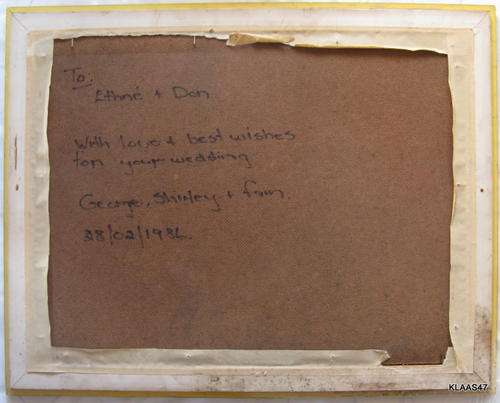 To:
Ethné + Don
With love + best wishes
for your wedding
George, Shirley + fam.
28/02/1986.
KLAAS47